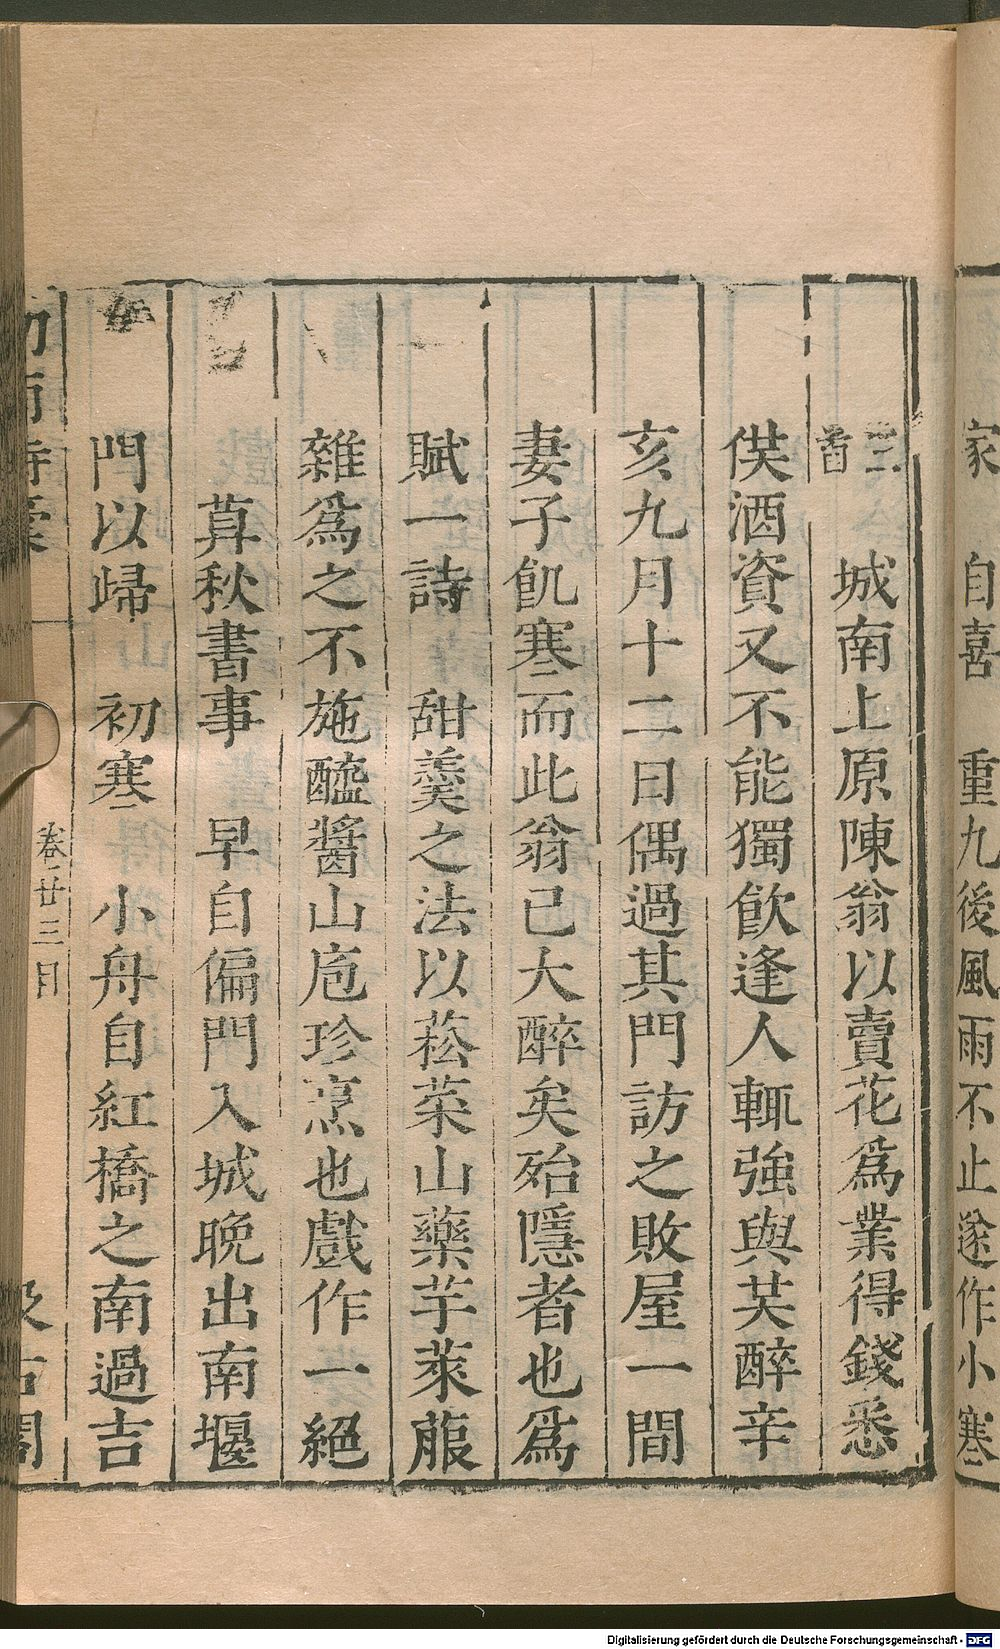 家 自喜 重九後風雨不止遂作小寒
三首 城南上原陳翁以賣花爲業得錢悉
供酒資又不能獨飲逢人輒強與共醉辛
亥九月十二日偶過其門訪之敗屋一間
妻子飢寒而此翁已大醉矣殆隱者也爲
賦一詩 甜羹之法以菘菜山藥芋萊菔
雜爲之不施醯醬山庖珍烹也戲作一絕
萛秋書事 早自偏門入城晚出南堰
門以歸 初寒 小舟自紅橋之南過吉
卷廿三目
Digitalisierung gefördert durch die Deutsche Forschungsgemeinschaft - DFG